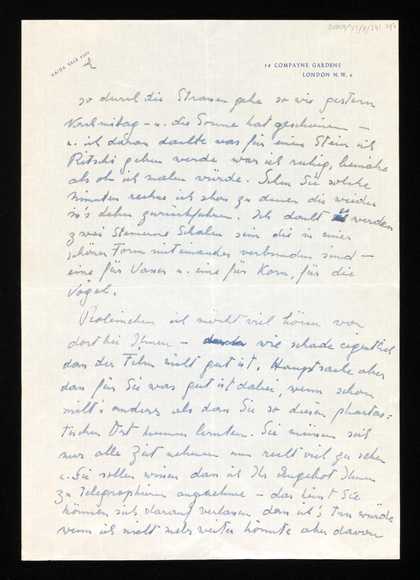 MAIDA VALE
2
14 COMPAYNE GARDENS
LONDON N.W.6
so durch die Strassen gehe so wie gestern
Nachmittag - u. die Sonne hat geschienen -
u. ich daran dachte was für einen Stein ich
Ritschi geben werde war ich ruhig, beinahe
als ob ich malen würde. Sehn Sie solche
Minuten rechne ich schon zu denen die wieder
in's Leben zurückführen. Ich dacht es werden
zwei Steinerne Schalen sein die in einer
schönen Form miteinander verbunden sind -
eine für Wasser u. eine für Korn, für die
Vögel.
ich möcht viel hören von
dort bei Ihnen - wie schade eigentlich
dass der Film nicht gut ist. Hauptsache aber
dass für Sie was gut ist dabei, wenn schon
nicht's anders als dass Sie so diesen phantas-
tischen Ort kennen lernten. Sie müssen sich
nur alle Zeit nehmen um recht viel zu sehen
u. Sie sollen wissen dass ich Ihr Angebot Ihnen
zu Telegraphieren annehme - das heisst Sie
können sich darauf verlassen dass ich's Tun würde
wenn ich nicht mehr weiter könnte aber davon